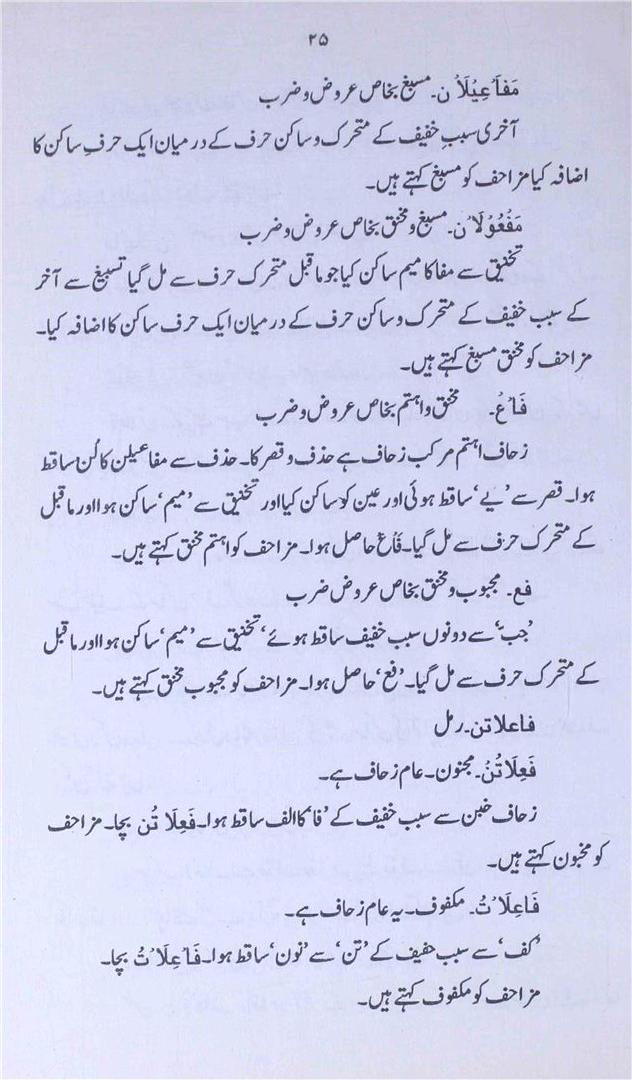 ۲۵
مَفَاعِیْلَاْن۔ مسبغ بخاص عروض و ضرب
آخری سببِ خفیف کے متحرک و ساکن حرف کے درمیان ایک حرفِ ساکن کا
اضافہ کیا مزاحف کو مسبغ کہتے ہیں۔
مَفْعُوْلَاْن۔ مسبغ و مخنق بخاص عروض و ضرب
تخنیق سے مفا کا میم ساکن کیا جو ماقبل متحرک حرف سے مل گیا تسبیغ سے آخر
کے سبب خفیف کے متحرک و ساکن حرف کے درمیان ایک حرف ساکن کا اضافہ کیا۔
مزاحف کو مخنق مسبغ کہتے ہیں۔
فَاْعْ۔ مخنق و اہتم بخاص عروض و ضرب
زحاف اہتم مرکب زحاف ہے حذف و قصر کا۔ حذف سے مفاعیلن کا لُن ساقط
ہوا۔ قصر سے ’یے‘ ساقط ہوئی اور عین کو ساکن کیا اور تخنیق سے ’میم‘ ساکن ہوا اور ماقبل
کے متحرک حرف سے مل گیا۔ فَاعْ حاصل ہوا۔ مزاحف کو اہتم مخنق کہتے ہیں۔
فع۔ مجبوب و مخنق بخاص عروض ضرب
’جب‘ سے دونوں سبب خفیف ساقط ہوئے‘ تخنیق سے ’میم‘ ساکن ہوا اور ماقبل
کے متحرک حرف سے مل گیا۔ ’فع‘ حاصل ہوا۔ مزاحف کو مجبوب مخنق کہتے ہیں۔
فاعلاتن۔ رمل
فَعِلَاتُنْ۔ مجنون۔ عام زحاف ہے۔
زحاف خبن سے سبب خفیف کے ’فا‘ کا الف ساقط ہوا۔ فَعِلَا تُن بچا۔ مزاحف
کو مخبون کہتے ہیں۔
فَاعِلَاتُ۔ مکفوف۔ یہ عام زحاف ہے۔
’کف‘ سے سبب خفیف کے ’تن‘ سے ’نون‘ ساقط ہوا۔ فَاْعِلَاْتُ بچا۔
مزاحف کو مکفوف کہتے ہیں۔